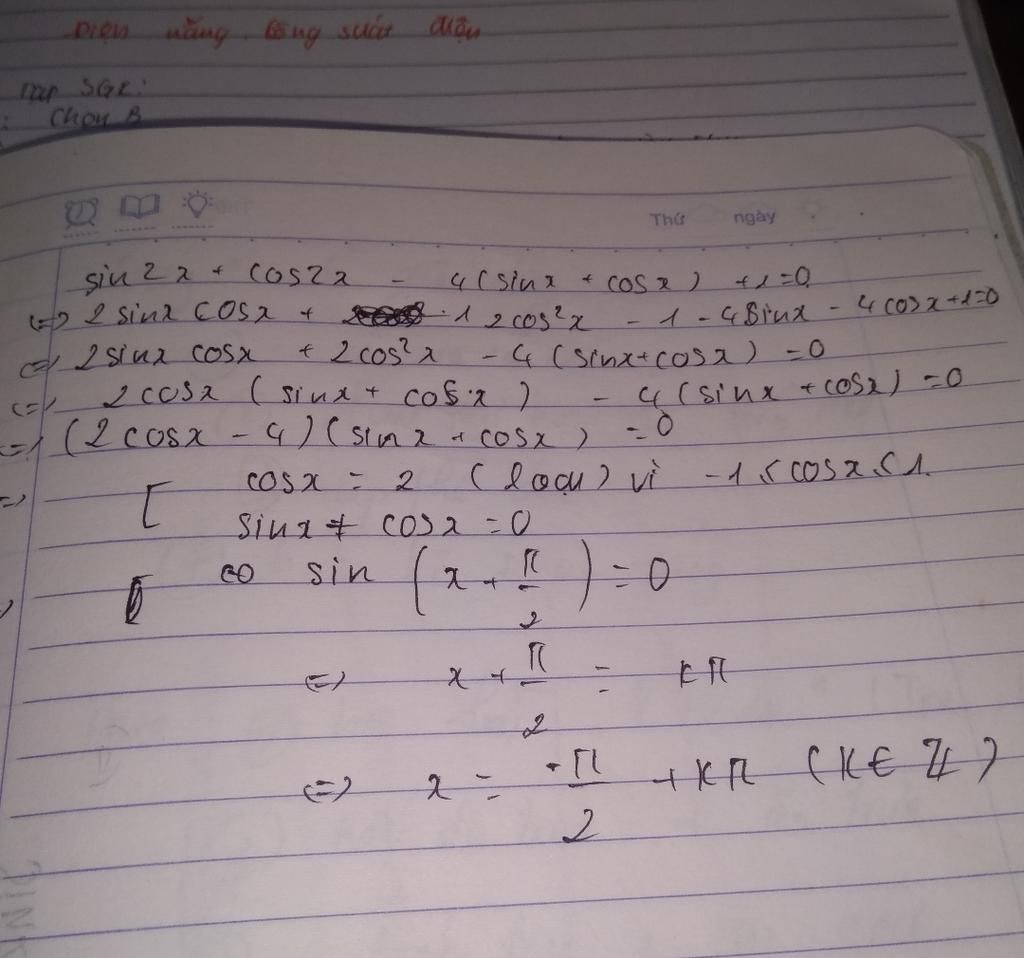 Điện năng. Công suất điện
SGK:
: Chọn B
Thứ ngày
sin2x + cos2x - 4(sinx + cosx) +1=0
<=> 2sinx cosx + 2cos²x - 1 - 4sinx - 4cosx+1=0
<=> 2sinx cosx + 2cos²x - 4(sinx+cosx) =0
<=> 2cosx (sinx + cosx) - 4(sinx + cosx) =0
<=> (2cosx - 4)(sinx + cosx) =0
=> [ cosx = 2 (loại) vì -1 ≤ cosx ≤ 1.
sinx + cosx =0
<=> sin (x + π/2) = 0
<=> x + π/2 = kπ
<=> x = -π/2 + kπ (k∈ℤ)